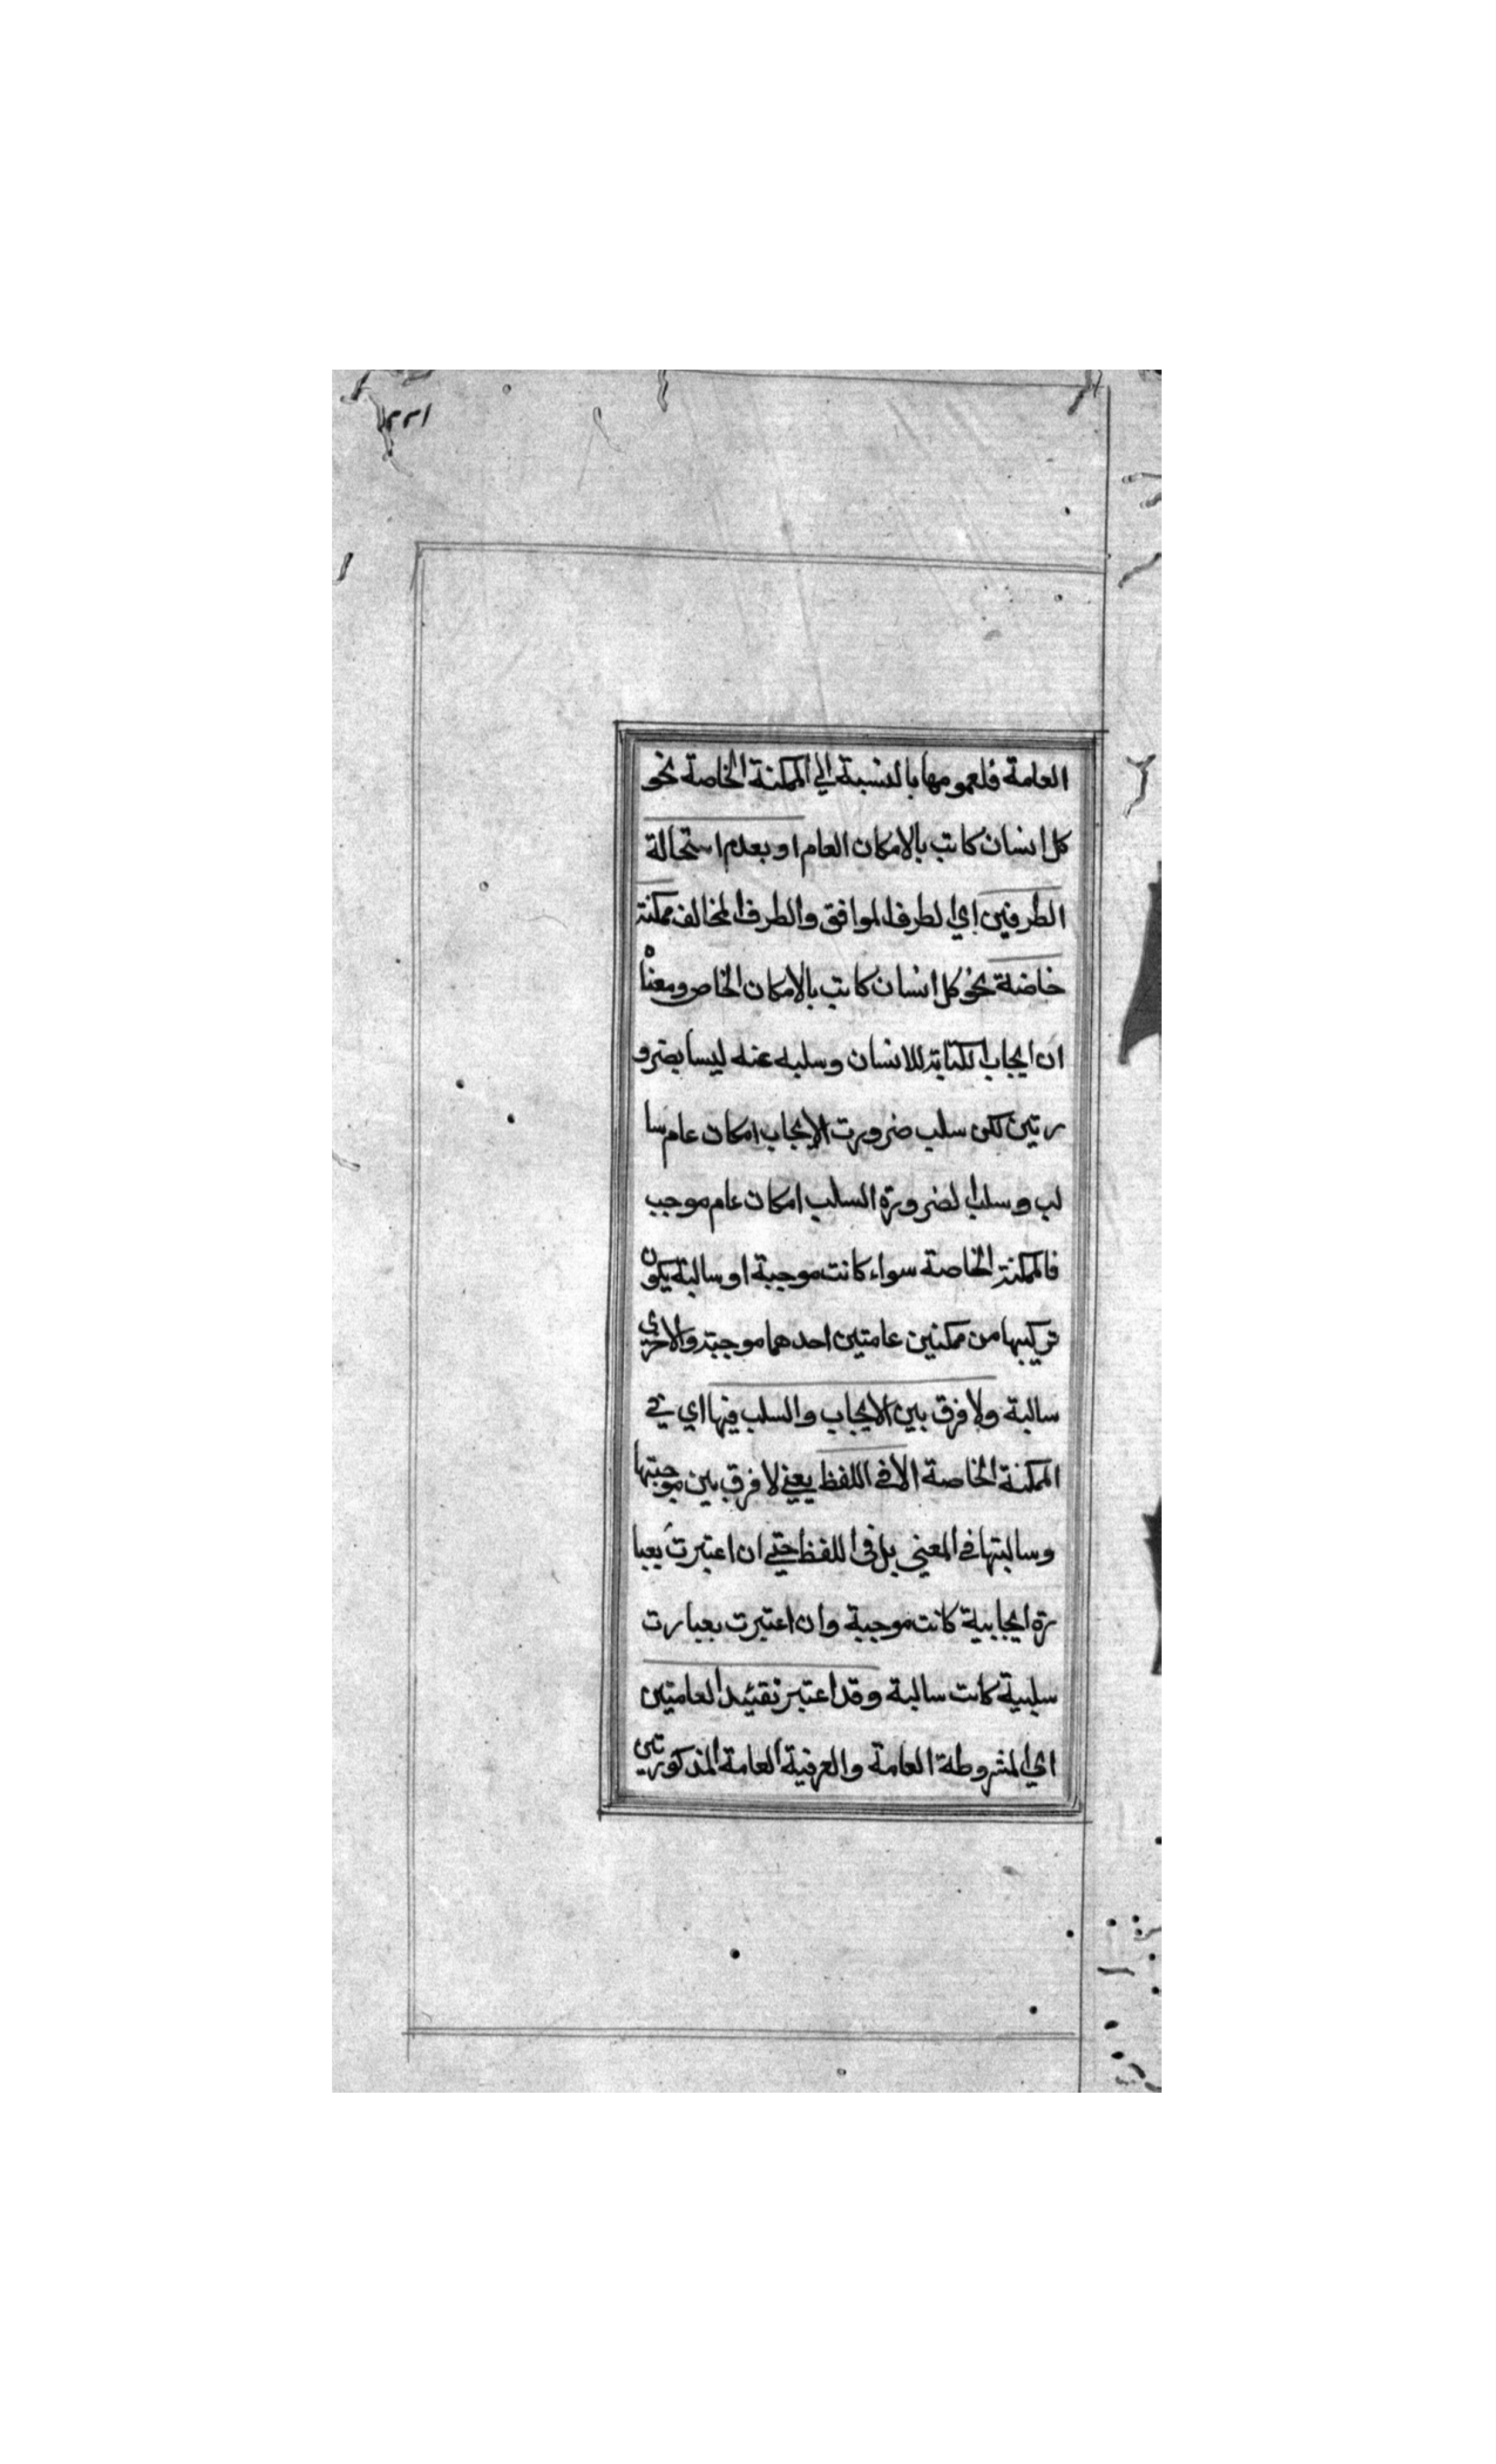 ١٢٢
العامة فلعمومها بالنسبة الي الممكنة الخاصة نحو
كل انسان كاتب بالامكان العام او بعدم استحالة
الطرفين اي الطرف الموافق والطرف المخالف ممكنة
خاصة نحو كل انسان كاتب بالامكان الخاص ومعناه
ان ايجاب الكتابة للانسان وسلبه عنه ليسا بضرو
رتين لكن سلب ضرورت الايجاب امكان عام سا
لب و سلب الضرورة السلب امكان عام موجب
فالممكنة الخاصة سواء كانت موجبة او سالبة يكون
تركيبها من ممكنين عامتين احدهما موجبة والاخري
سالبة ولا فرق بين الايجاب والسلب فيها اي في
الممكنة الخاصة الا في اللفظ يعني لا فرق بين موجبتها
وسالبتها في المعني بل في اللفظ حتي ان اعتبرت بعبا
رة ايجابية كانت موجبة وان اعتبرت بعبارت
سلبية كانت سالبة وقد اعتبر تقييد العامتين
اي المشروطة العامة والعرفية العامة المذكورتين